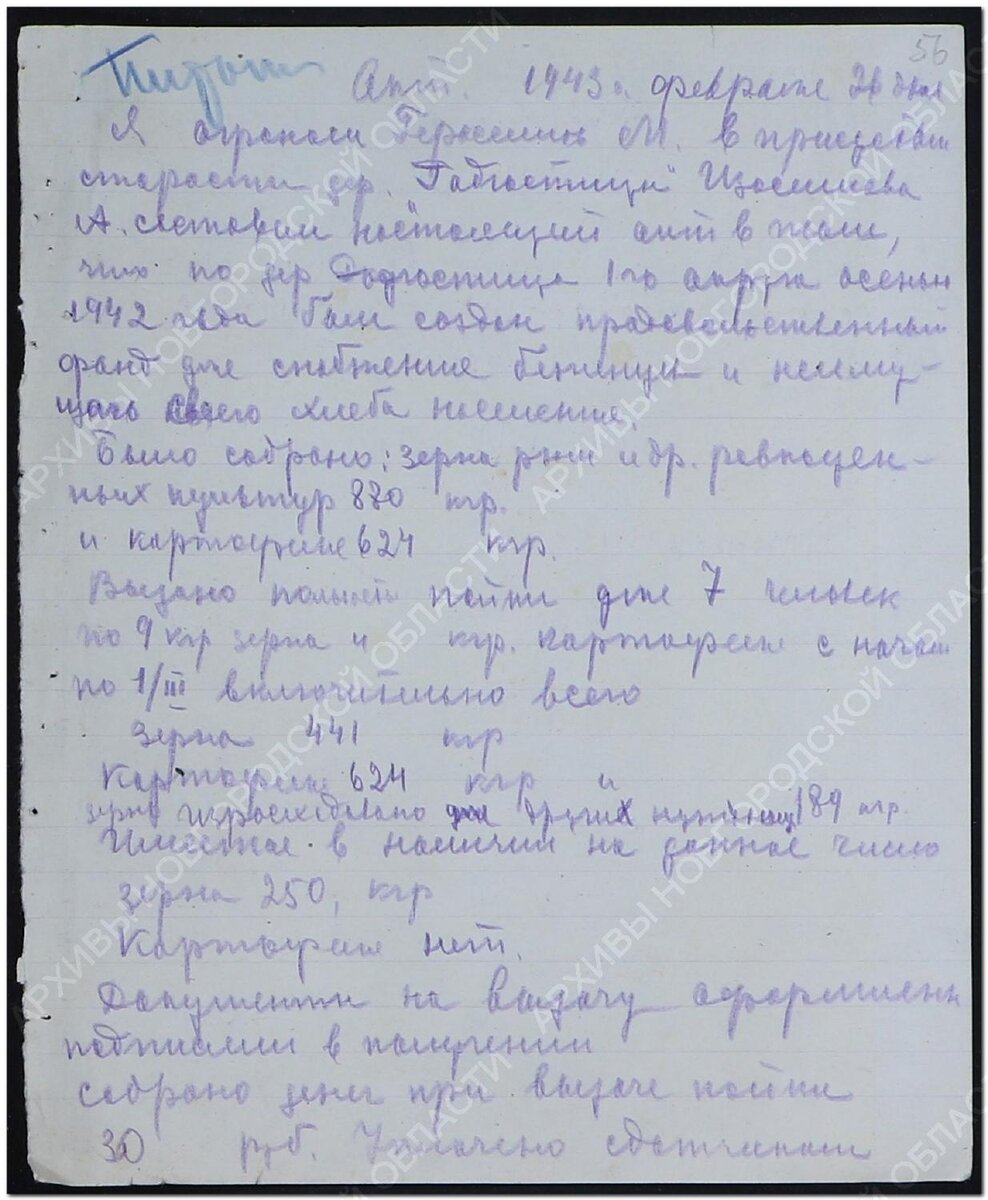 56
Акт. 1943 г. февраля 26 дня
Я агроном Герасимов М. в присутствии
старосты дер. "Гадгостицы"
А. составил настоящий акт в том,
что по дер 1го округа осенью
1942 года был создан продовольственный
фонд для снабжения беженцев и неиму-
щего своего хлеба населения.
Было собрано: зерна ржи и др. равноцен-
ных культур 880 кгр.
и картофеля 624 кгр.
Выдано пайки для 7 человек
по 9 кгр зерна и кгр. картофеля с начала
по 1/III включительно всего
Зерна 441 кгр
Картофеля 624 кгр и
зерна израсходовано для других 189 кгр.
Имеется в наличии на данное число
зерна 250, кгр
Картофеля нет.
Документы на выдачу оформлены
подписями в получении
собрано денег при выдаче пайки
30 руб. Уплачено сдатчикам
АРХИВЫ НОВГОРОДСКОЙ ОБЛАСТИ